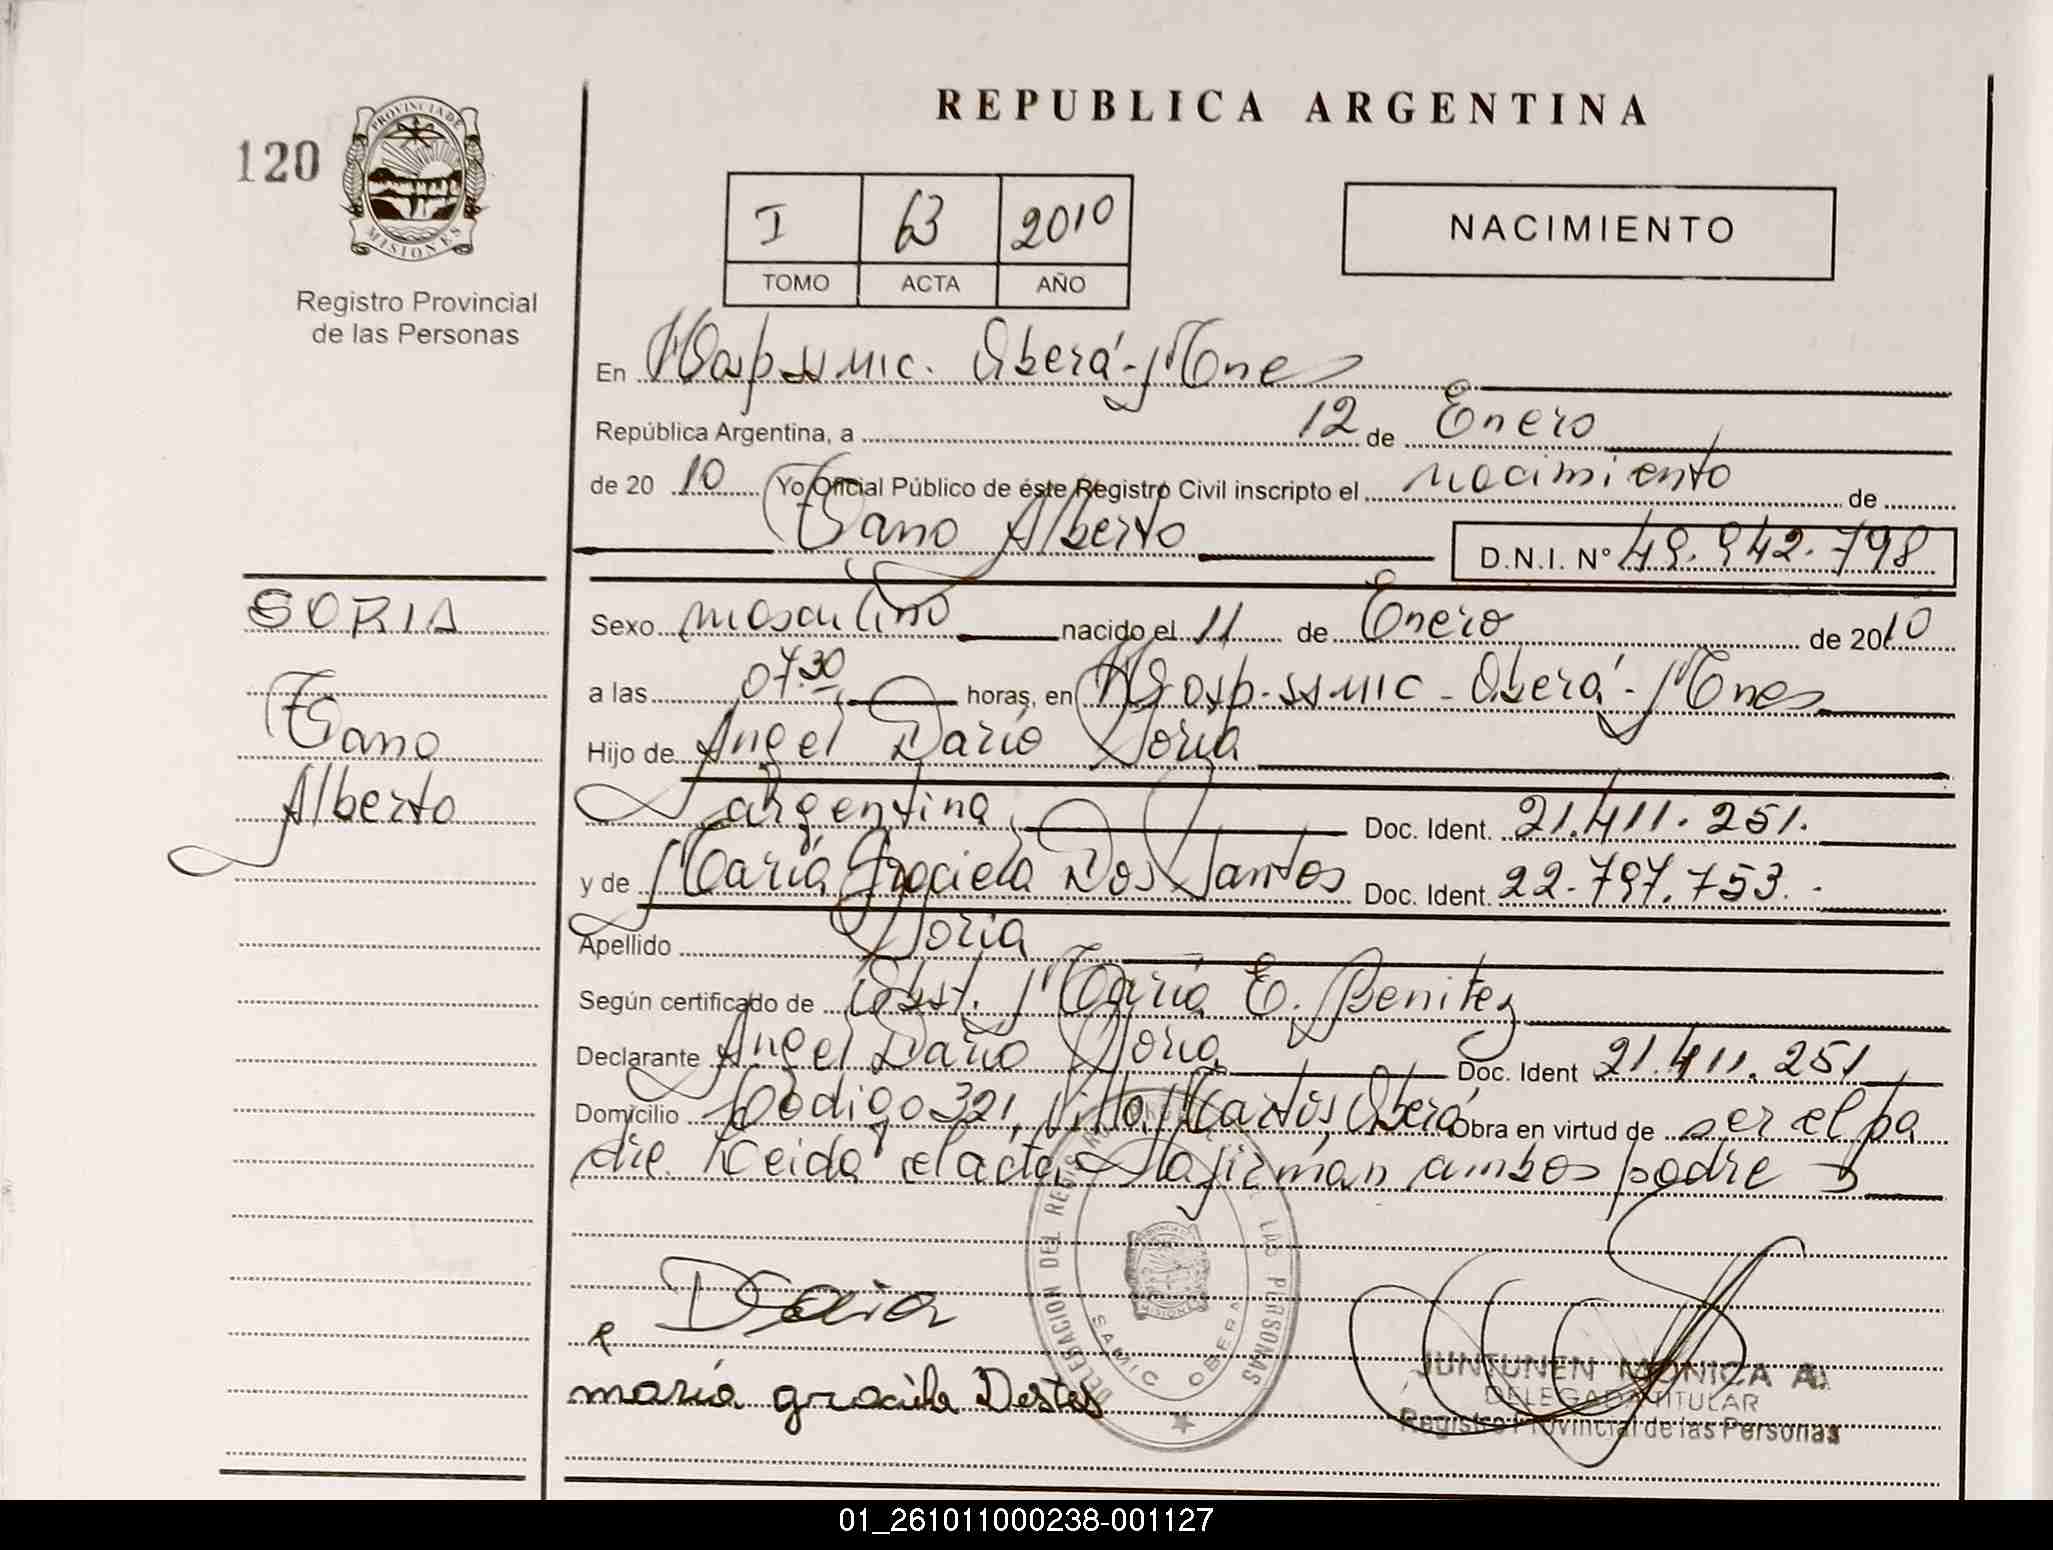 REPUBLICA ARGENTINA
120
PROVINCIA DE MISIONES
Registro Provincial
de las Personas
I 63 2010
TOMO ACTA AÑO
NACIMIENTO
En Hosp. SS MIC. Oberá - Mnes
República Argentina, a 12 de Enero
de 20 10 Yo Oficial Público de éste Registro Civil inscripto el nacimiento de
Alberto
D.N.I. Nº 49.942.798
SORIA
Alberto
Sexo masculino nacido el 11 de Enero de 2010
a las 07.30 horas, en Hosp. SS MIC - Oberá - Mnes
Hijo de Angel Dario Soria
argentina Doc. Ident. 21.411.251.
y de María Graciela Dos Santos Doc. Ident. 22.797.753.-
Apellido Soria
Según certificado de Obst. María E. Benitez
Declarante Angel Dario Soria Doc. Ident 21.411.251
Domicilio Código 321, Villa Martos, Oberá Obra en virtud de ser el pa
dre. Leida el acta, la firman ambos padres
DELEGACION DEL REGISTRO PROVINCIAL DE LAS PERSONAS
SAMIC OBERA
JUNTUNEN MONICA A.
DELEGADA TITULAR
Registro Provincial de las Personas
01_261011000238-001127